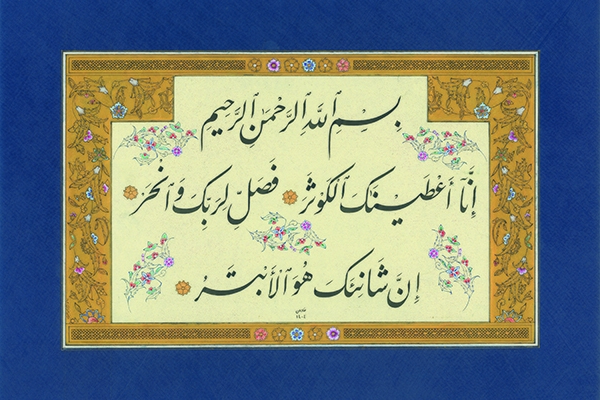 بِسْمِ ٱللَّهِ ٱلرَّحْمَٰنِ ٱلرَّحِيمِ
إِنَّآ أَعْطَيْنَٰكَ ٱلْكَوْثَرَ فَصَلِّ لِرَبِّكَ وَٱنْحَرْ
إِنَّ شَانِئَكَ هُوَ ٱلْأَبْتَرُ